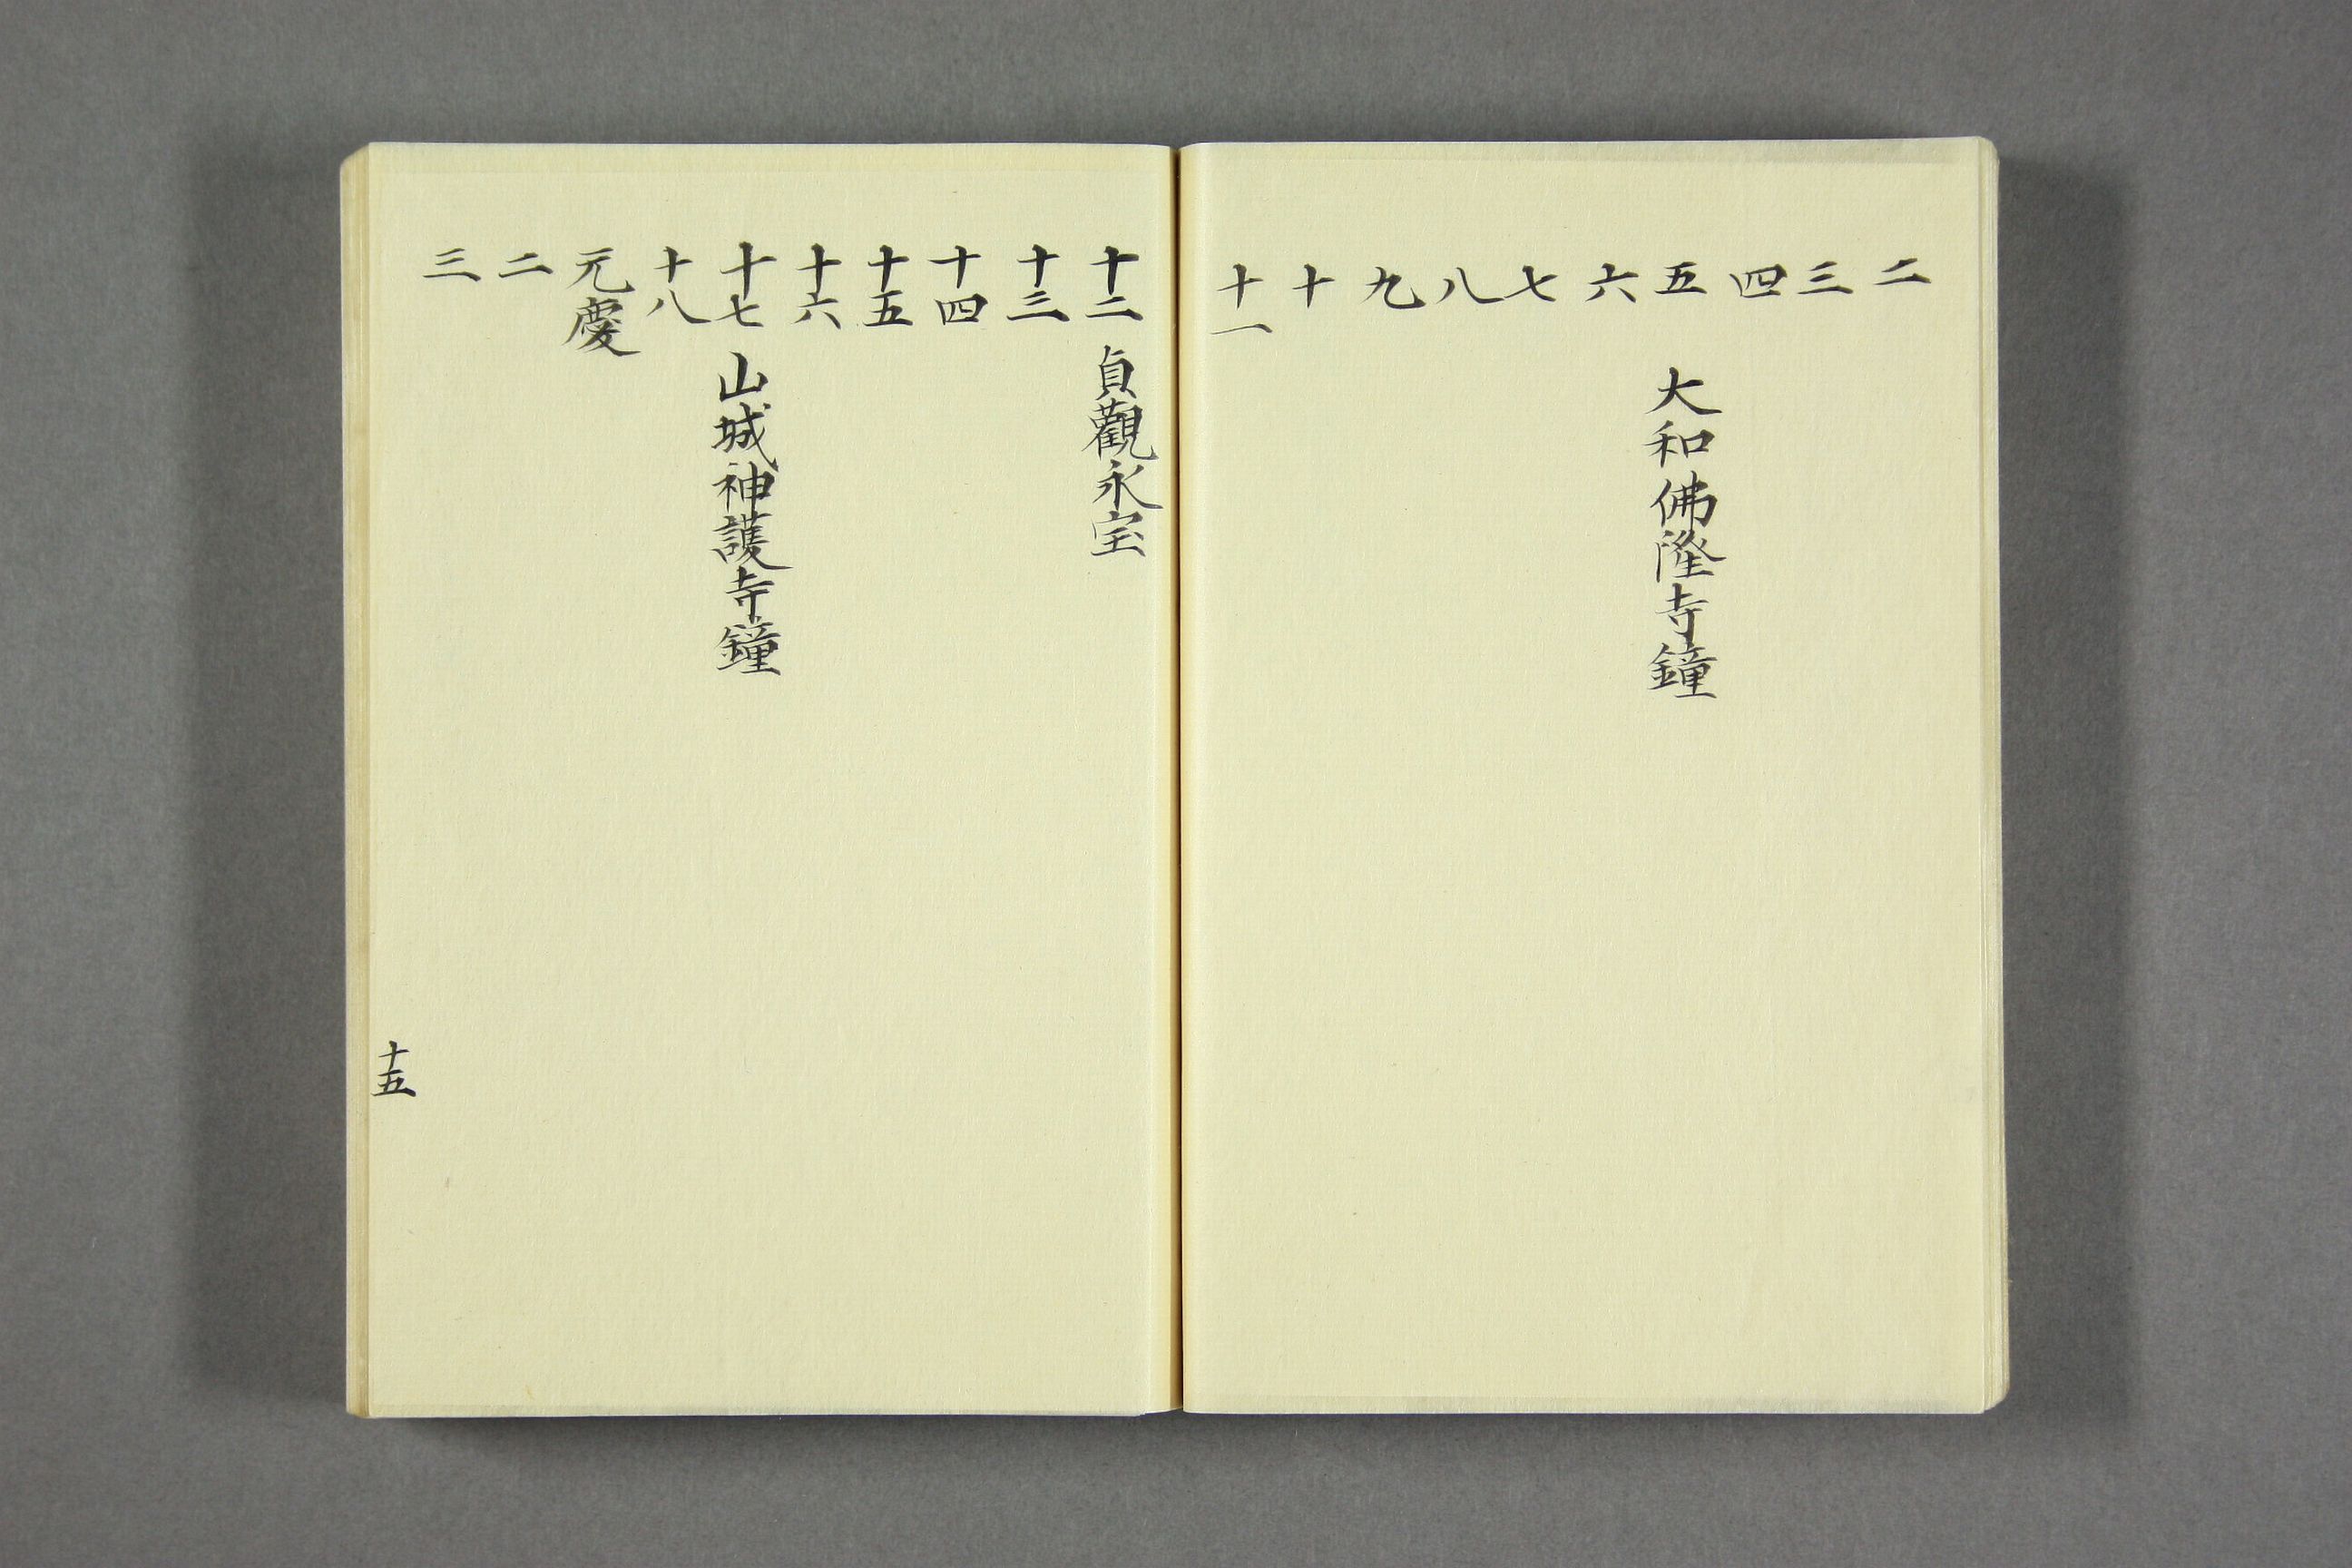 二
三
四
五 大和佛隆寺鐘
六
七
八
九
十
十一
十二 貞觀永宝
十三
十四
十五
十六
十七 山城神護寺鐘
十八
元慶
二
三
十五